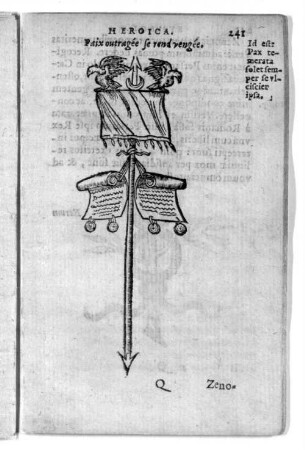 HEROICA. 241
Paix outragée se rend vengée.
Id est
Pax te-
merata
solet sem-
per se vl-
ciscier
ipsa.
Q Zeno-